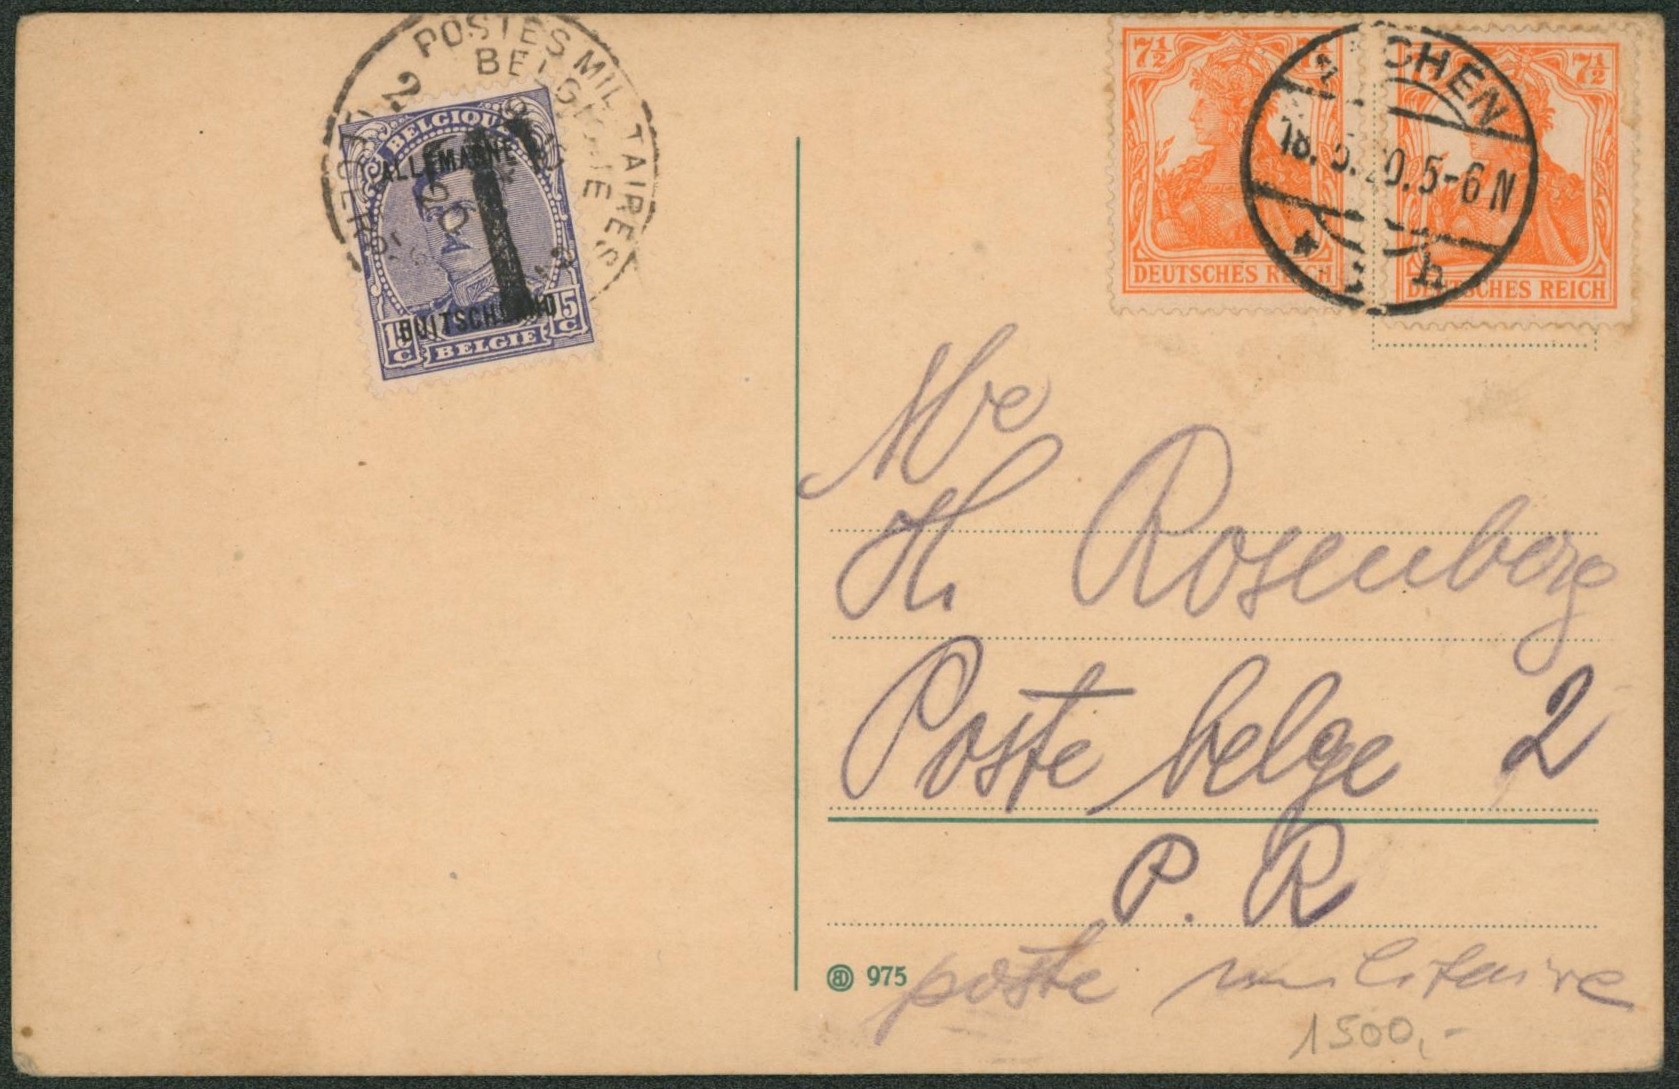 POSTES MILITAIRES
BELGIQUE
2
BELGIQUE
ALLEMAGNE
T
DUITSCHLAND
15 C 15 C
BELGIË
7½
7½
DEUTSCHES REICH
DEUTSCHES REICH
CHEN
5-6 N
Me
H. Rosenberg
Poste belge 2
P. R
poste militaire
975
1500,-